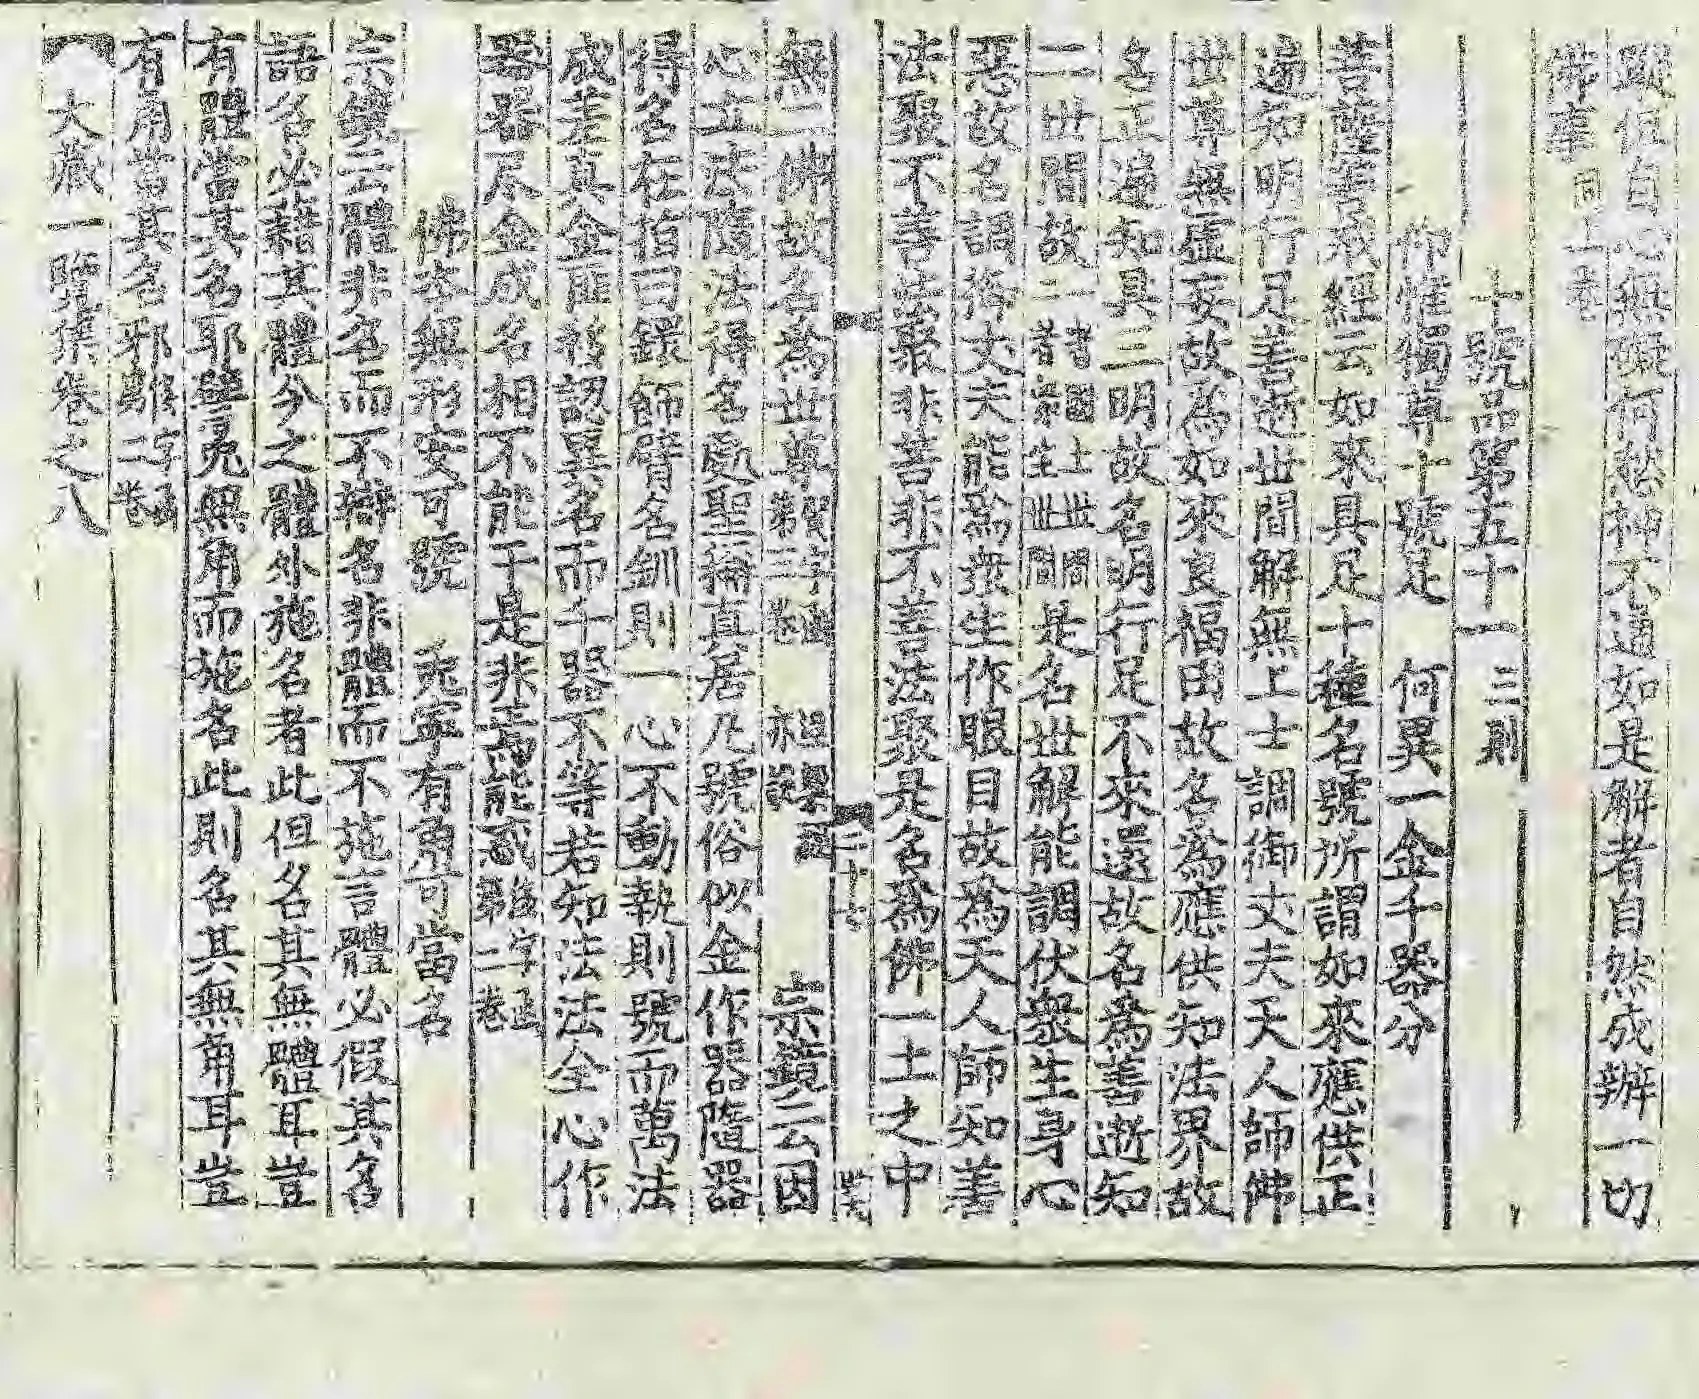 蹤但自心無礙何愁神不通如是解者自然成辦一切
佛事同上卷
十號品第五十一 三則
仰惟獨尊十號足 何異一金千器分
菩薩善戒經云如來具足十種名號所謂如來應供正
遍知明行足善逝世間解無上士調御丈夫天人師佛
世尊無虛妄故為如來良福田故名為應供知法界故
名正遍知具三明故名明行足不來還故名為善逝知
二世間故一者國土世間二者眾生世間是名世解能調伏眾生身心
惡故名調御丈夫能為眾生作眼目故為天人師知善
法聚不善法聚非善非不善法聚是名為佛一土之中
無二佛故名為世尊 宗鏡云因
心立法隨法得名處聖稱真居凡號俗似金作器隨器
得名在指曰鐶飾臂名釧則一心不動執則號而萬法
成差真金匪移認異名而千器不等若知法法全心作
器器尽金成名相不能干是非焉能惑
佛本無形安可號 兎寧有角可當名
宗鏡云體非名而不辯名非體而不施言體必假其名
語名必藉其體今之體外施名者此但名其無體耳豈
有體當其名耶譬兎無角而施名此則名其無角耳豈
有角當其名邪
大藏一覽集卷之八